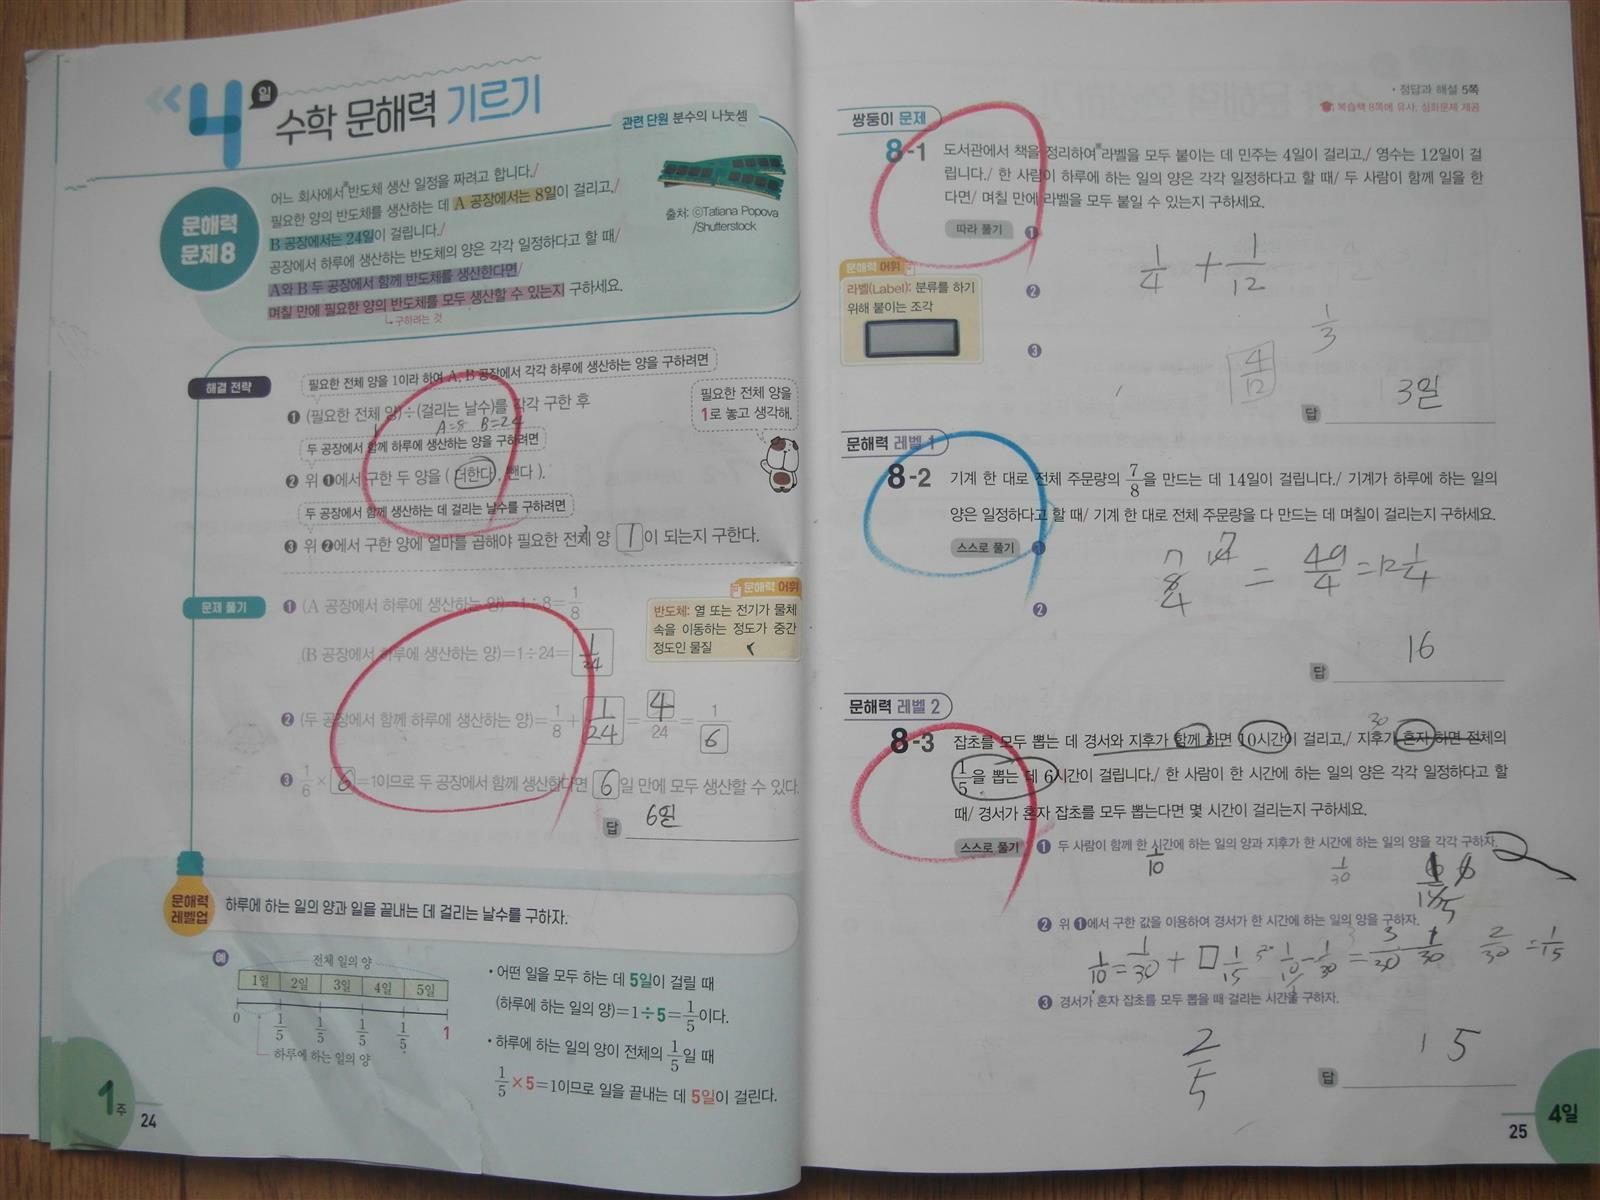 4일 수학 문해력 기르기
관련 단원 분수의 나눗셈
문해력
문제 8
어느 회사에서 *반도체 생산 일정을 짜려고 합니다./
필요한 양의 반도체를 생산하는 데 A 공장에서는 8일이 걸리고,/
B 공장에서는 24일이 걸립니다./
공장에서 하루에 생산하는 반도체의 양은 각각 일정하다고 할 때/
A와 B 두 공장에서 함께 반도체를 생산한다면/
며칠 만에 필요한 양의 반도체를 모두 생산할 수 있는지 구하세요.
↳구하려는 것
출처: ©Tatiana Popova
/Shutterstock
해결 전략
필요한 전체 양을 1이라 하여 A, B 공장에서 각각 하루에 생산하는 양을 구하려면
❶ (필요한 전체 양)÷(걸리는 날수)를 각각 구한 후
1 A=8 B=24
두 공장에서 함께 하루에 생산하는 양을 구하려면
❷ 위 ❶에서 구한 두 양을 ( 더한다 , 뺀다 ).
두 공장에서 함께 생산하는 데 걸리는 날수를 구하려면
❸ 위 ❷에서 구한 양에 얼마를 곱해야 필요한 전체 양 1이 되는지 구한다.
필요한 전체 양을
1로 놓고 생각해.
문제 풀기
❶ (A 공장에서 하루에 생산하는 양)=1÷8=1/8
(B 공장에서 하루에 생산하는 양)=1÷24=1/24
문해력 어휘
반도체: 열 또는 전기가 물체
속을 이동하는 정도가 중간
정도인 물질
❷ (두 공장에서 함께 하루에 생산하는 양)=1/8+1/24=4/24=1/6
❸ 1/6×6=1이므로 두 공장에서 함께 생산한다면 6일 만에 모두 생산할 수 있다.
답 6일
문해력
레벨업
하루에 하는 일의 양과 일을 끝내는 데 걸리는 날수를 구하자.
예
전체 일의 양
1일 2일 3일 4일 5일
0 1/5 1/5 1/5 1/5 1
하루에 하는 일의 양
• 어떤 일을 모두 하는 데 5일이 걸릴 때
(하루에 하는 일의 양)=1÷5=1/5이다.
• 하루에 하는 일의 양이 전체의 1/5일 때
1/5×5=1이므로 일을 끝내는 데 5일이 걸린다.
1주
24
• 정답과 해설 5쪽
복습책 8쪽에 유사, 심화문제 제공
쌍둥이 문제
8-1 도서관에서 책을 정리하여 *라벨을 모두 붙이는 데 민주는 4일이 걸리고,/ 영수는 12일이 걸
립니다./ 한 사람이 하루에 하는 일의 양은 각각 일정하다고 할 때/ 두 사람이 함께 일을 한
다면/ 며칠 만에 라벨을 모두 붙일 수 있는지 구하세요.
따라 풀기 ❶
1/4 + 1/12
문해력 어휘
라벨(Label): 분류를 하기
위해 붙이는 조각
❷
1/3
❸
4/12
답 3일
문해력 레벨 1
8-2 기계 한 대로 전체 주문량의 7/8을 만드는 데 14일이 걸립니다./ 기계가 하루에 하는 일의
양은 일정하다고 할 때/ 기계 한 대로 전체 주문량을 다 만드는 데 며칠이 걸리는지 구하세요.
스스로 풀기 ❶
= 49/4 = 12 1/4
❷
답 16
문해력 레벨 2
30
8-3 잡초를 모두 뽑는 데 경서와 지후가 함께 하면 10시간이 걸리고,/ 지후가 혼자 하면 전체의
1/5을 뽑는 데 6시간이 걸립니다./ 한 사람이 한 시간에 하는 일의 양은 각각 일정하다고 할
때/ 경서가 혼자 잡초를 모두 뽑는다면 몇 시간이 걸리는지 구하세요.
스스로 풀기 ❶ 두 사람이 함께 한 시간에 하는 일의 양과 지후가 한 시간에 하는 일의 양을 각각 구하자.
1/10 1/30
❷ 위 ❶에서 구한 값을 이용하여 경서가 한 시간에 하는 일의 양을 구하자.
1/10=1/30+□ 1/15 1/10-1/30=3/30-1/30 2/30=1/15
❸ 경서가 혼자 잡초를 모두 뽑을 때 걸리는 시간을 구하자.
2/5
답 15
25
4일